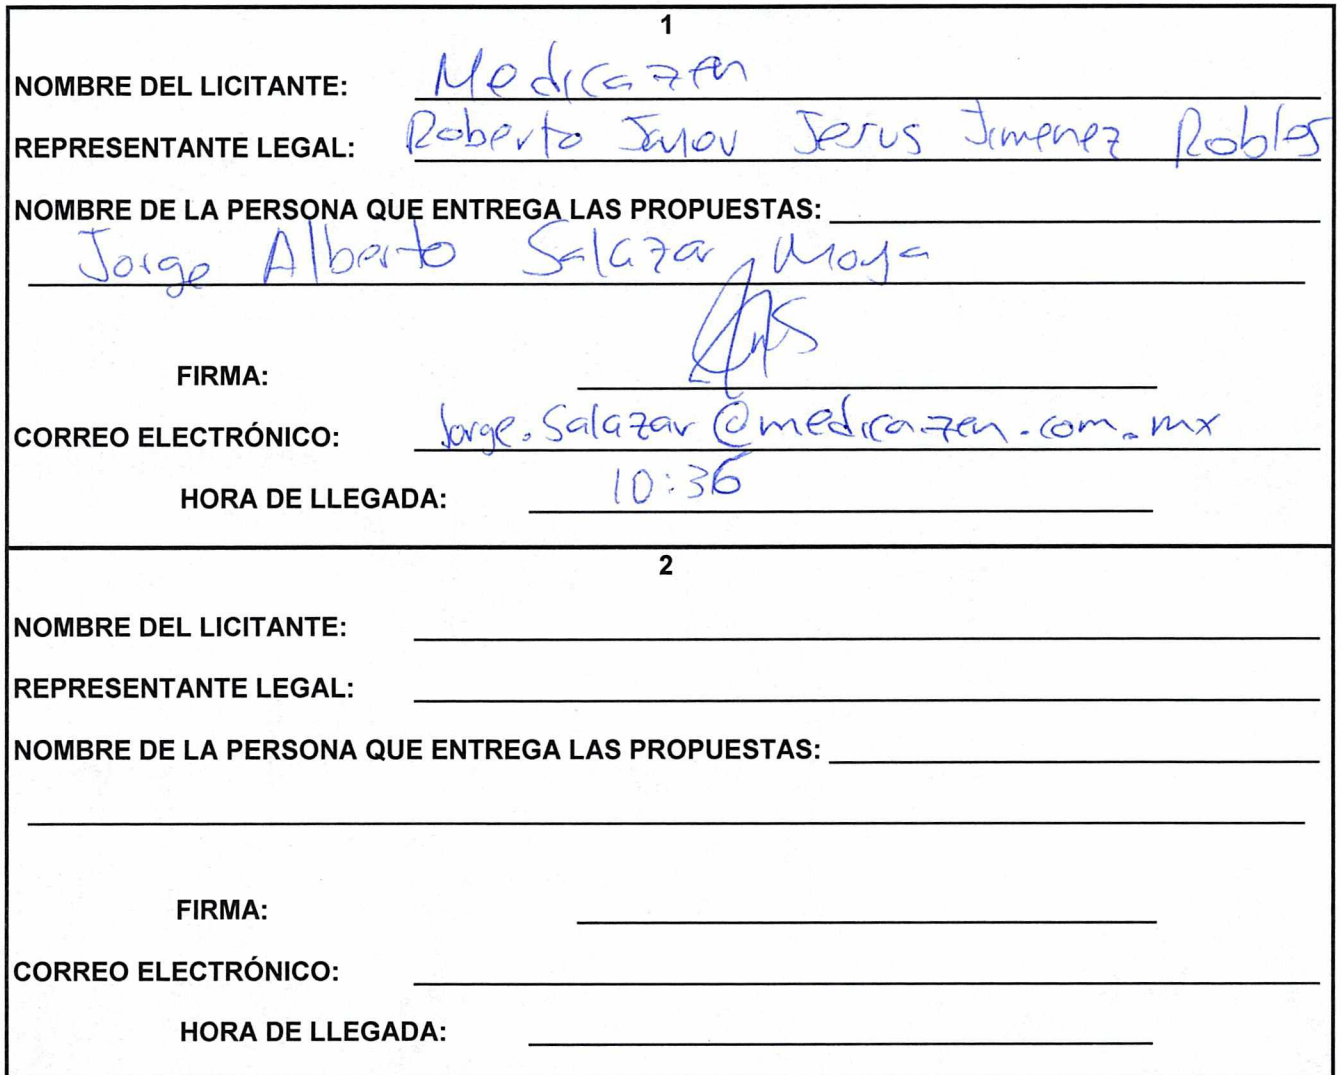 1
NOMBRE DEL LICITANTE: Medicazen
REPRESENTANTE LEGAL: Roberto Jesus Jimenez Robles
NOMBRE DE LA PERSONA QUE ENTREGA LAS PROPUESTAS:
Jorge Alberto Salazar Moya
FIRMA:
CORREO ELECTRÓNICO: Jorge.Salazar@medicazen.com.mx
HORA DE LLEGADA: 10:36
2
NOMBRE DEL LICITANTE:
REPRESENTANTE LEGAL:
NOMBRE DE LA PERSONA QUE ENTREGA LAS PROPUESTAS:
FIRMA:
CORREO ELECTRÓNICO:
HORA DE LLEGADA: